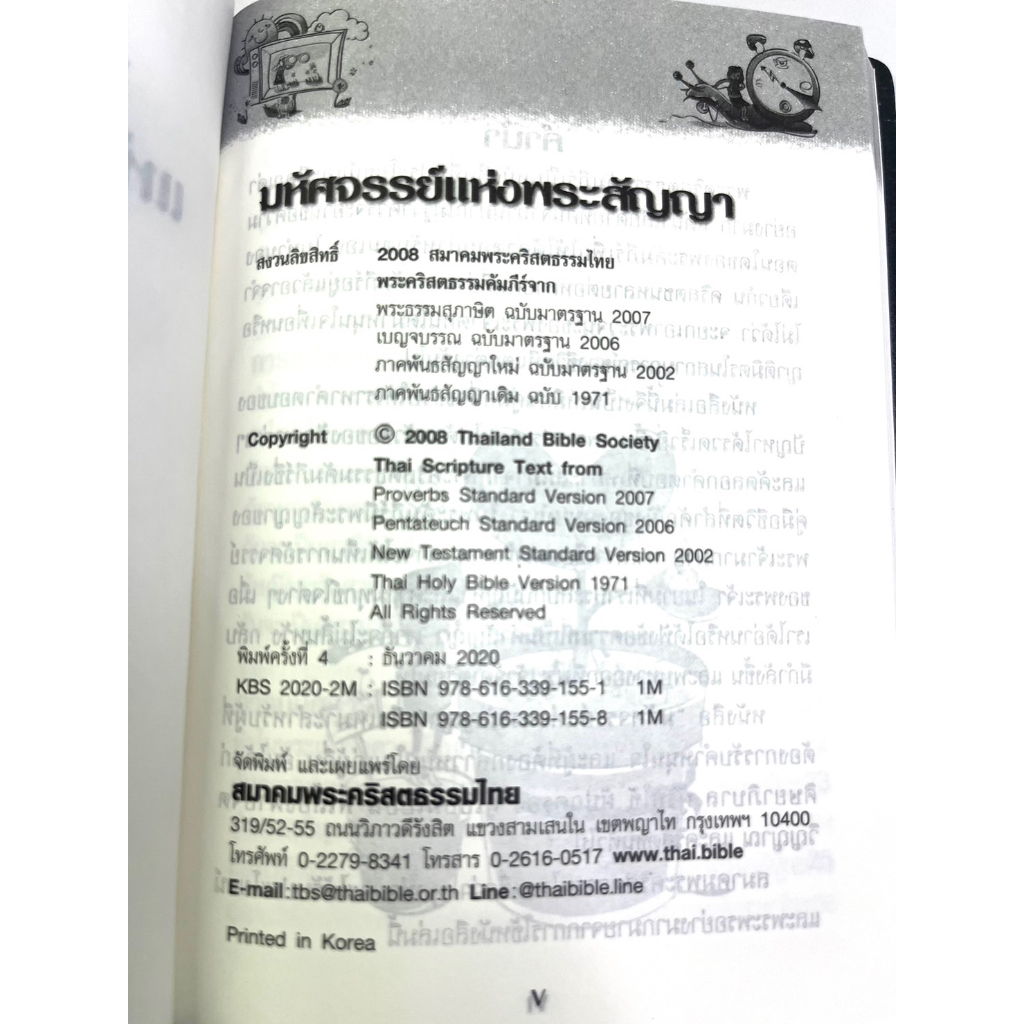 มหัศจรรย์แห่งพระสัญญา
สงวนลิขสิทธิ์ 2008 สมาคมพระคริสตธรรมไทย
พระคริสตธรรมคัมภีร์จาก
พระธรรมสุภาษิต ฉบับมาตรฐาน 2007
เบญจบรรณ ฉบับมาตรฐาน 2006
ภาคพันธสัญญาใหม่ ฉบับมาตรฐาน 2002
ภาคพันธสัญญาเดิม ฉบับ 1971
Copyright © 2008 Thailand Bible Society
Thai Scripture Text from
Proverbs Standard Version 2007
Pentateuch Standard Version 2006
New Testament Standard Version 2002
Thai Holy Bible Version 1971
All Rights Reserved
พิมพ์ครั้งที่ 4 : ธันวาคม 2020
KBS 2020-2M : ISBN 978-616-339-155-1 1M
ISBN 978-616-339-155-8 1M
จัดพิมพ์ และเผยแพร่โดย
สมาคมพระคริสตธรรมไทย
319/52-55 ถนนวิภาวดีรังสิต แขวงสามเสนใน เขตพญาไท กรุงเทพฯ 10400
โทรศัพท์ 0-2279-8341 โทรสาร 0-2616-0517 www.thai.bible
E-mail:tbs@thaibible.or.th Line:@thaibible.line
Printed in Korea
V